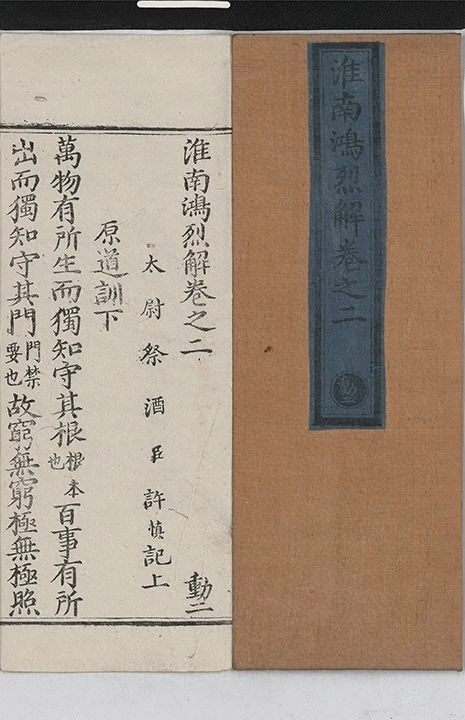 淮南鴻烈解卷之二
淮南鴻烈解卷之二 動二
太尉祭酒臣許慎記上
原道訓下
萬物有所生而獨知守其根根本也百事有所
出而獨知守其門門禁要也故窮無窮極無極照